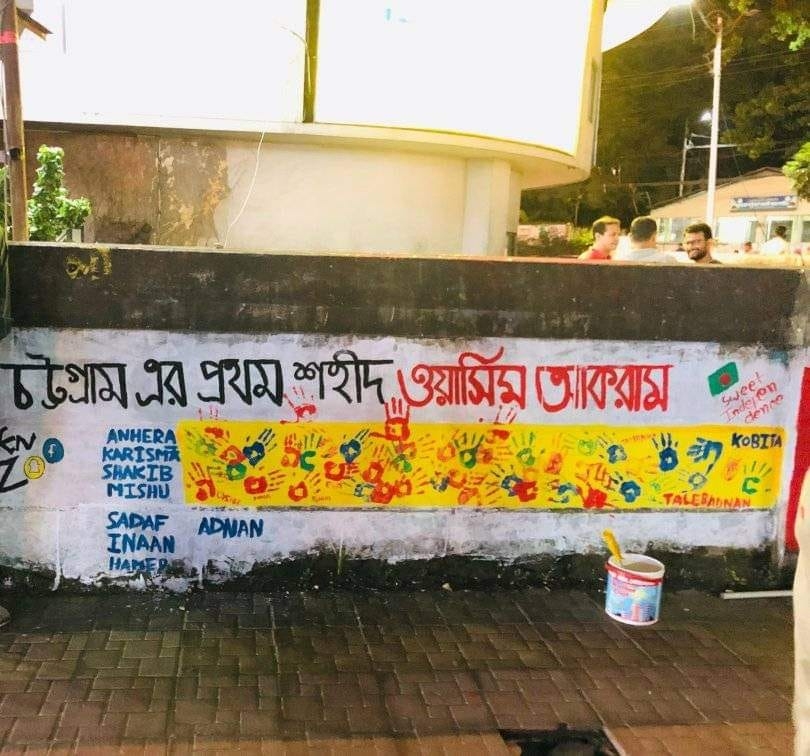 চট্টগ্রাম এর প্রথম শহীদ ওয়াসিম আকরাম
Sweet
Indepen
dence
EN
Z
ANHERA
KARISMA
SHAKIB
MISHU
KOBITA
TALEBADNAN
SADAF
ADNAN
INAAN
HAMED